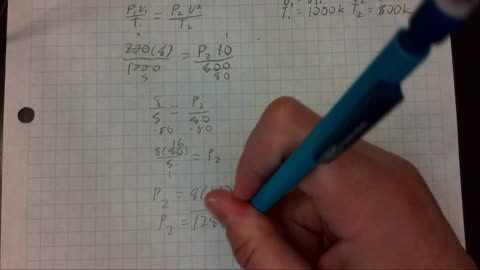 P₁V₁ / T₁ = P₂V² / T₂
T₁ = 1000k T₂ = 800k
200(8) / 1000 = P₂ 10 / 800
5 80
8 / 5 = P₂ / 80
·80 ·80
16
8(80) / 5 = P₂
1
P₂ =
P₂ = 128